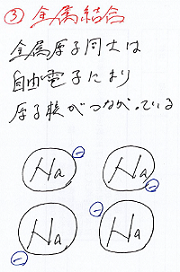 ③金属結合
金属原子同士は
自由電子により
原子核がつながっている
Na ⊖ Na ⊖
Na ⊖ Na ⊖